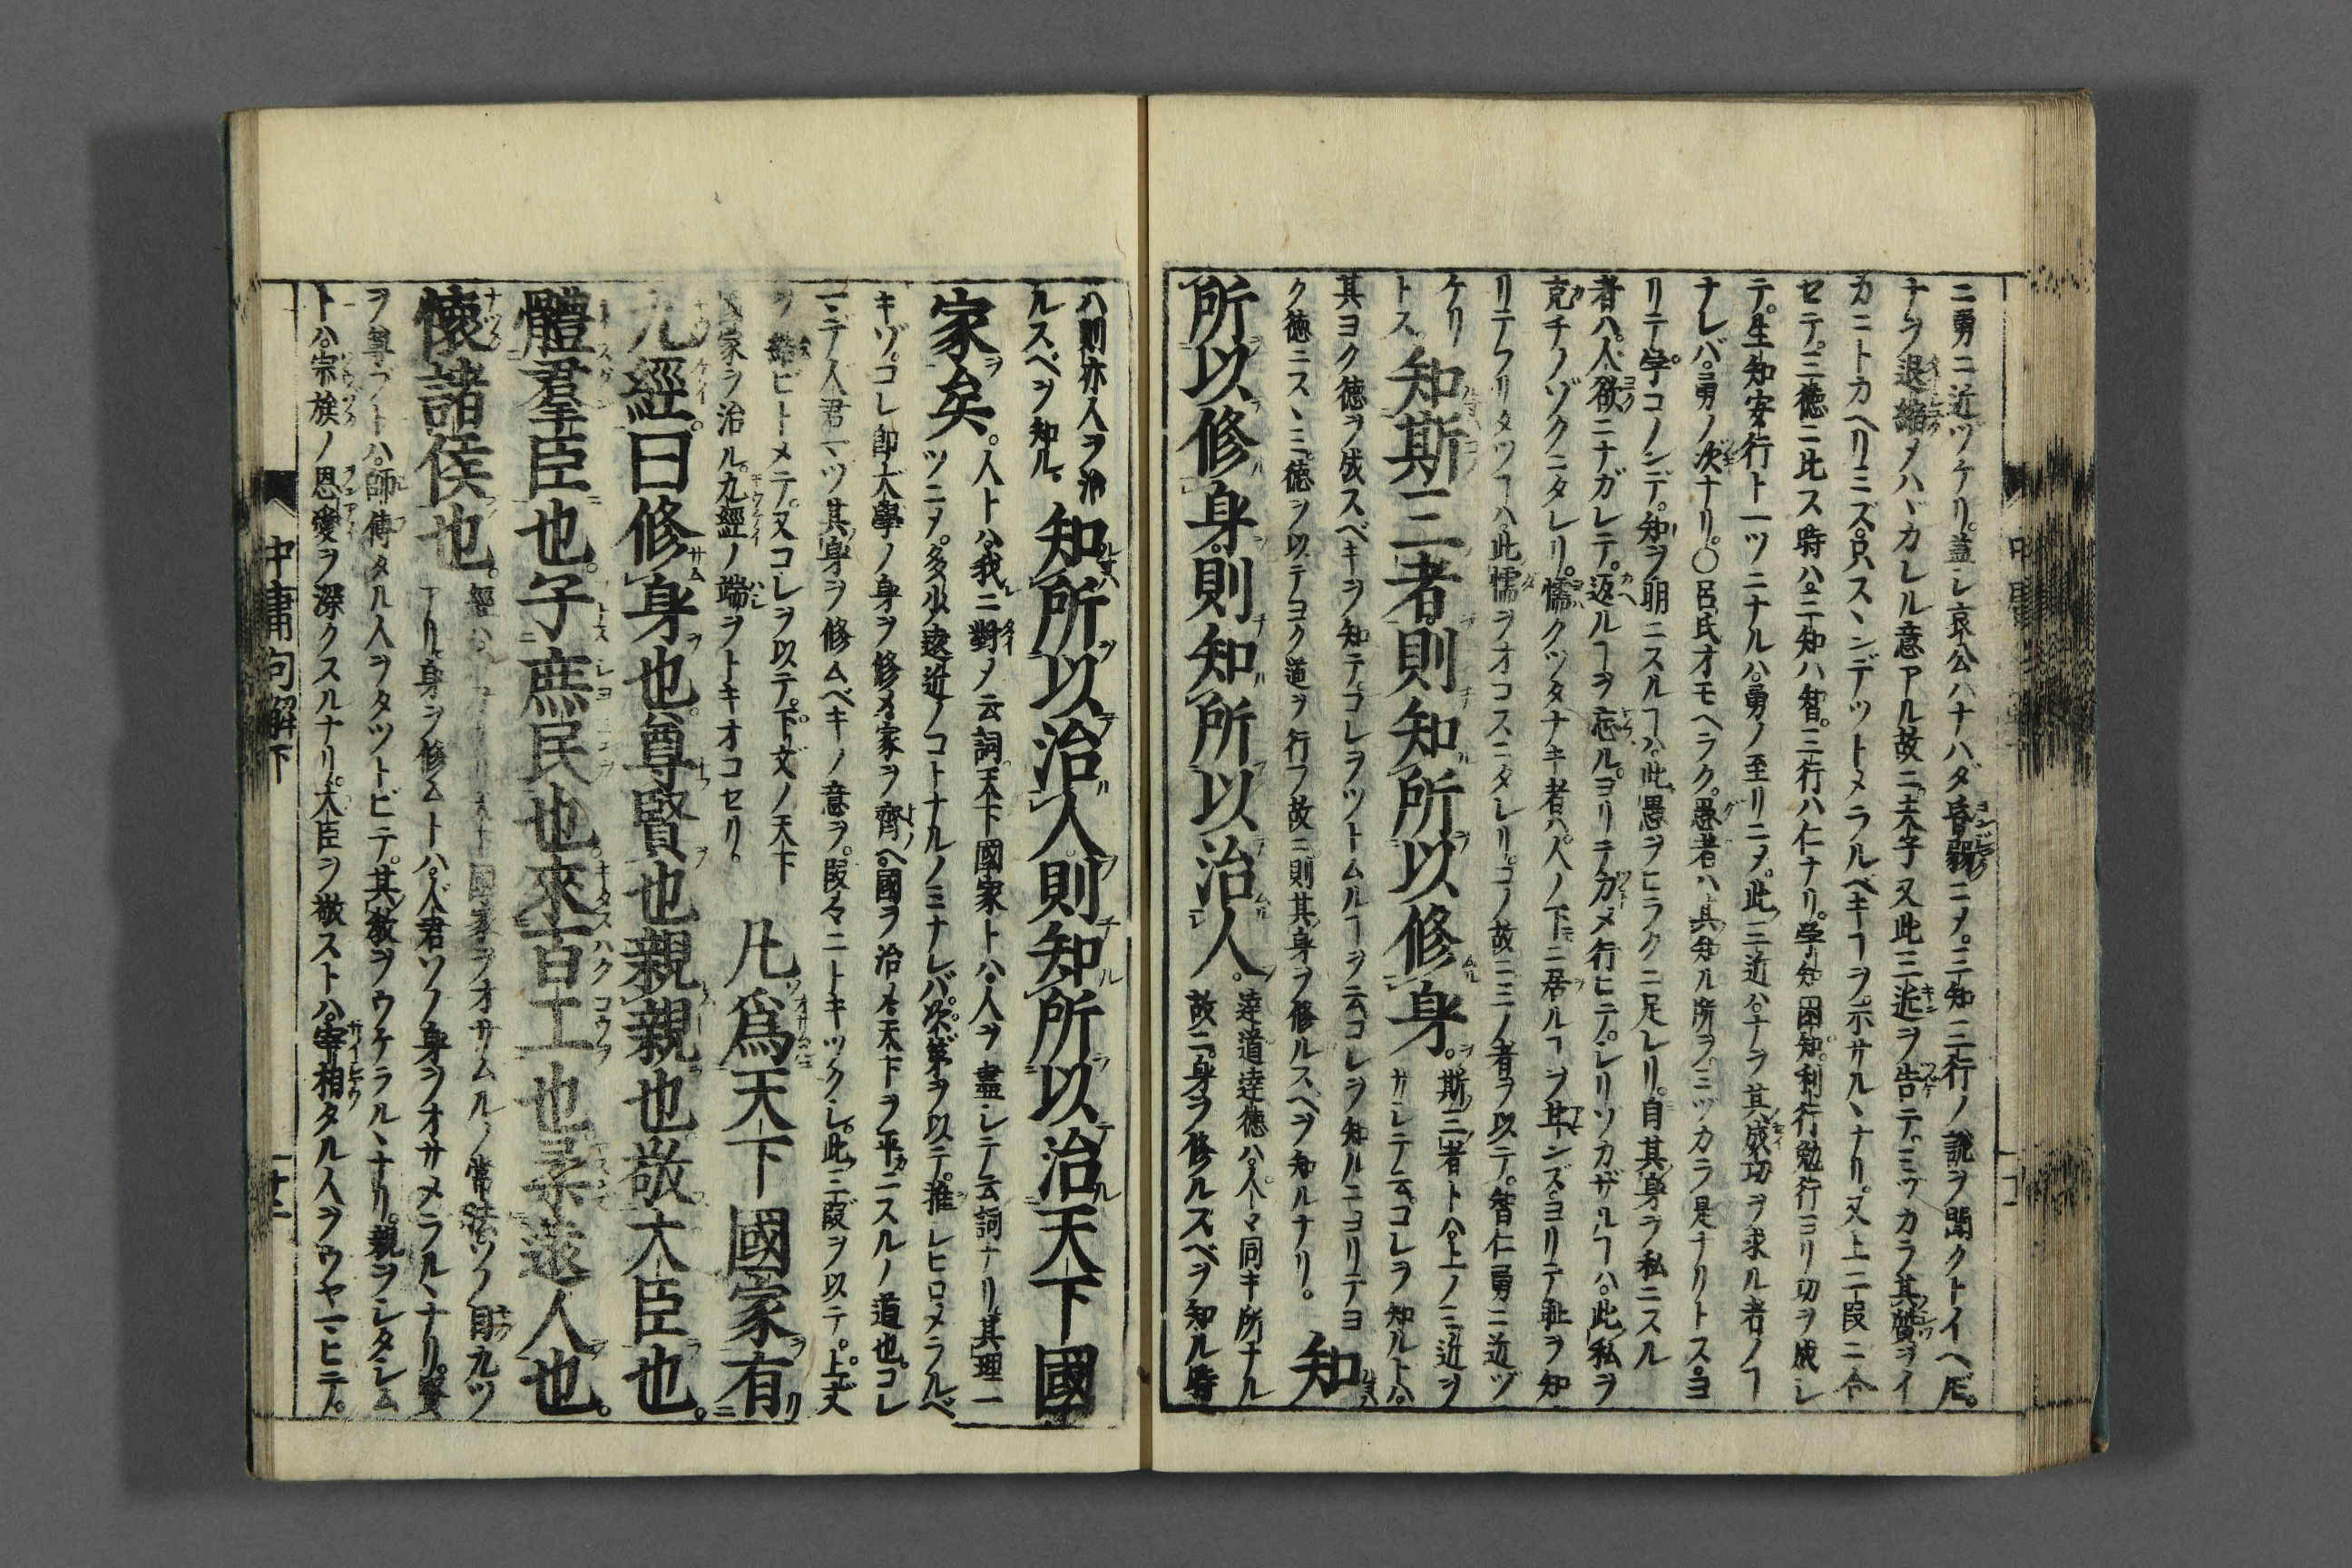 ニ勇ニ近ヅケリ。蓋シ哀公ハナハダ昏弱ニメ。三知三行ノ説ヲ聞クトイヘ𪜈。
ナヲ退縮メハヾカレル意アル故ニ。夫子又此三近ヲ告テ。ミヅカラ其贊ヲイ
カニトカヘリミズ。只スヽンデツトメラルベキヿヲ。示サルヽナリ。又上ニ段ニ合
セテ。三徳ニ比ス時ハ。三知ハ智。三行ハ仁ナリ。学知困知。利行勉行ヨリ功ヲ成シ
テ。生知安行ト一ツニナルハ。勇ノ至リニメ。此三近ハ。ナヲ其成功ヲ求ル者ノヿ
ナレバ。勇ノ次ナリ。○呂氏オモヘラク。愚者ハ其知ル所ヲ。ミヅカラ是ナリトス。ヨ
リテ学コノンデ。知ヲ明ニスルヿハ。此愚ヲヒラクニ足レリ。自其身ヲ私ニスル
者ハ。人欲ニナガレテ。返ルヿヲ忘ル。ヨリテ力メ行ヒテ。シリソカザルヿハ。此私ヲ
克チノゾクニタレリ。懦クツタナキ者ハ。人ノ下ニ居ルヿヲ甘ンズ。ヨリテ耻ヲ知
リテフリタツヿハ。此懦ヲオコスニタレリ。コノ故ニ三ノ者ヲ以テ。智仁勇ニ近ヅ
ケリ
トス 知斯三者。則知所以修身。斯三者トハ。上ノ三近ヲ
サシテ云。コレヲ知ルトハ。
其ヨク徳ヲ成スベキヲ知テ。コレヲツトムルヿヲ云。コレヲ知ルニヨリテヨ
ク徳ニスヽミ。徳ヲ以テヨク道ヲ行フ故ニ。則其身ヲ修ルスベヲ知ルナリ。 知
所以修身。則知所以治人。達道達徳ハ。人々同キ所ナル
故ニ。身ヲ修ルスベヲ知ル時
ハ則亦人ヲ治
ルスベヲ知ル。 知所以治人。則知所以治天下國
家矣。人トハ。我ニ對メ云詞。天下國家トハ。人ヲ盡シテ云詞ナリ。其理一
ツニメ。多少遠近ノコトナルノミナレバ。次第ヲ以テ。推シヒロメラルベ
キゾ。コレ即大學ノ身ヲ修メ。家ヲ齊ヘ。國ヲ治メ。天下ヲ平ニスルノ道也。コレ
マデ人君マヅ其身ヲ修ムベキノ意ヲ。段々ニトキツクシ。此三段ヲ以テ。上文
ヲ結ビトメテ。又コレヲ以テ。下文ノ天下
國家ヲ治ル。九經ノ端ヲトキオコセリ。 凡爲天下國家有
九經。曰修身也。尊賢也。親親也。敬大臣也。
體羣臣也。子庶民也。來百工也。柔遠人也。
懷諸侯也。經ハ 天下國家ヲオサムルノ常法。ソノ目九ツ
アリ。身ヲ修ムトハ。人君ソノ身ヲオサメラルヽナリ。賢
ヲ尊ブトハ。師傅タル人ヲタツトビテ。其教ヲウケラルヽナリ。親ヲシタシム
トハ。宗族ノ恩愛ヲ深クスルナリ。大臣ヲ敬ストハ。宰相タル人ヲウヤマヒテ。
中庸句解下